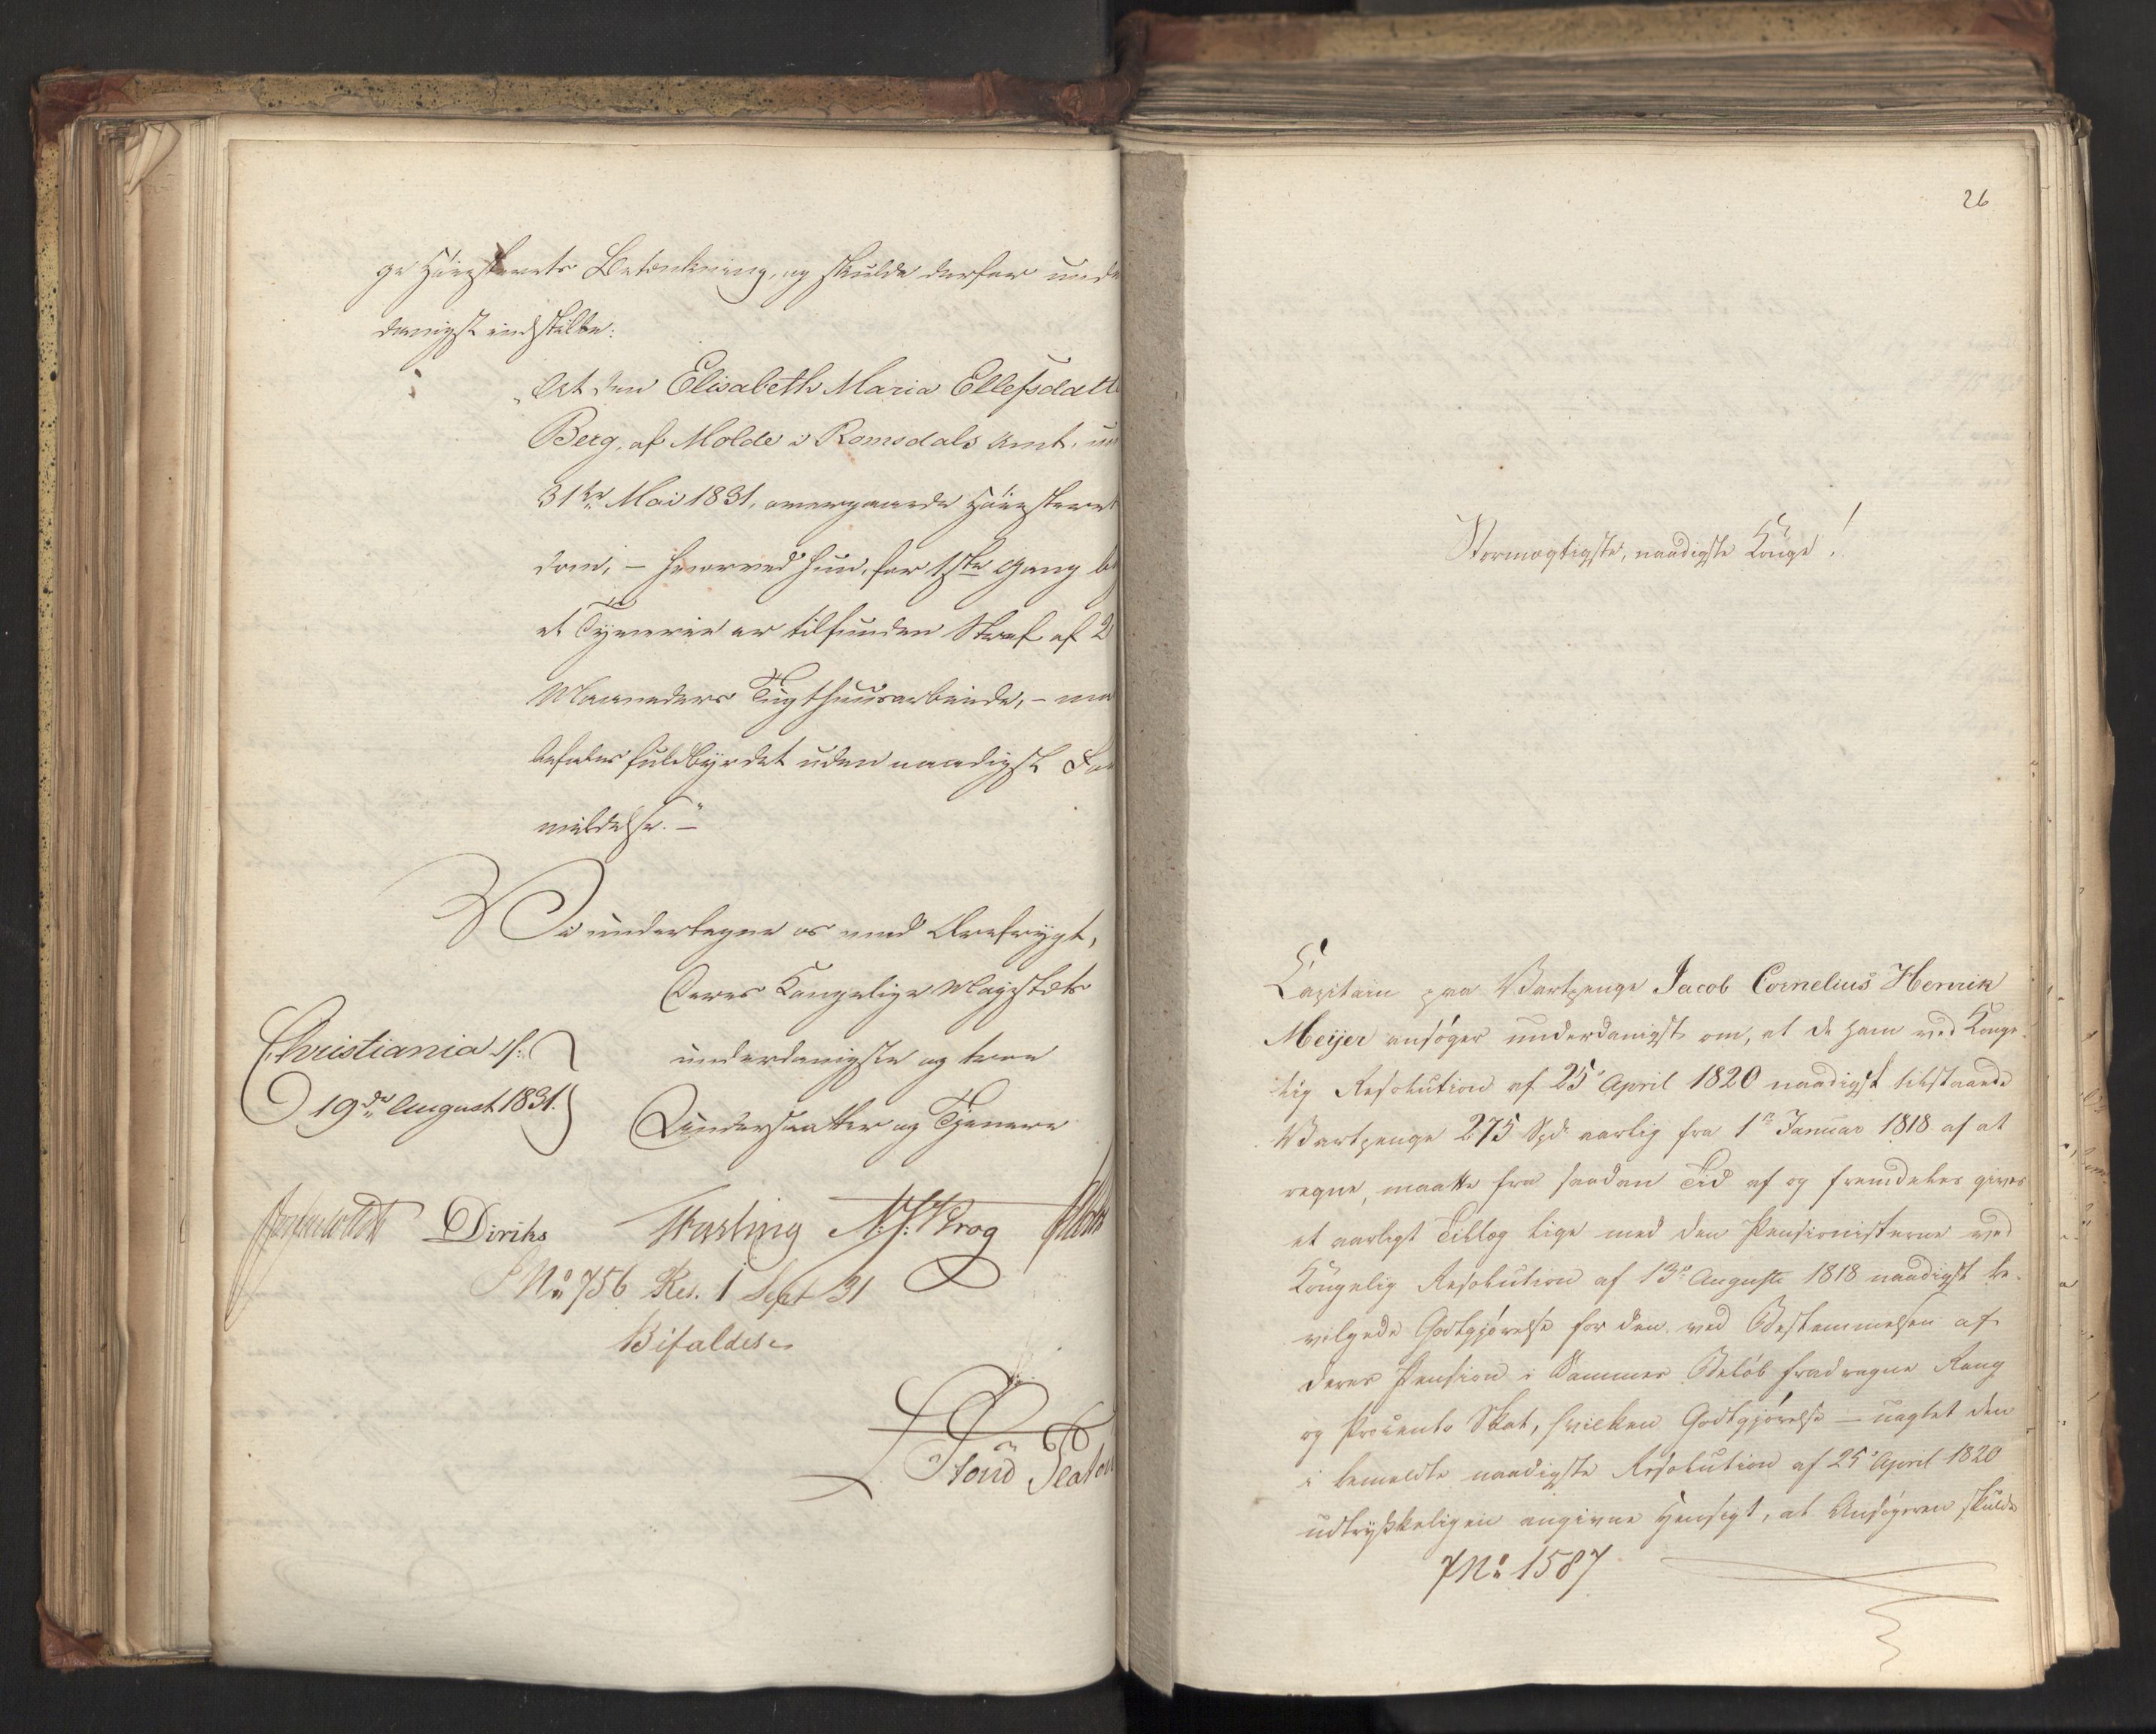 ge Høiesterets Betænkning, og skulde derfor unde
danigst indstille:
„At den Elisabeth Maria Ellefsdatte
Berg, af Molde i Romsdals Amt, un
31te Mai 1831, overgaaede Høiesteret
dom, – hvorved hun, for 1ste Gang be
et Tyverie er tilfunden Straf af 2
Maaneders Tugthuusarbeide, – maa
befales fuldbyrdet uden naadigst For
mildelse." –
Vi undertegne os med Ærefrygt,
Deres Kongelige Majestæts
Christiania d:
underdanigste og troe
19de August 1831.
Undersaatter og Tjenere
Diriks N. J. Krog
No 756 Res. 1 Sept 31
Bifaldes
26
Stormægtigste, naadigste Konge!
Capitain paa Vartpenge Jacob Cornelius Henrik
Meÿer ansøger underdanigst om, at de ham ved Konge-
lig Resolution af 25 April 1820 naadigst tilstaaede
Vartpenge 275 Spd aarlig fra 1ste Januar 1818 af at
regne, maatte fra saadan Tid af og fremdeles gives
et aarligt Tillæg lige med den Pensionisterne ved
Kongelig Resolution af 13de Augusti 1818 naadigst be-
vilgede Godtgjørelse for den ved Bestemmelsen af
deres Pension i Summer Beløb fradragne Rang
og Procents Skat, hvilken Godtgjørelse – uagtet den
i bemeldte naadigste Resolution af 25 April 1820
udtrykkeligen angivne Hensigt, at Ansøgeren skulde
No 1587